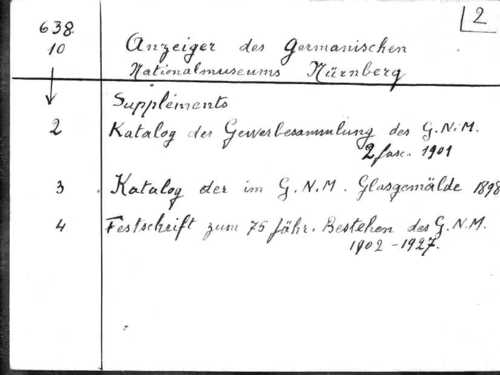 2
638
10
Anzeiger des Germanischen
Nationalmuseums Nürnberg
Suppléments
2 Katalog der Gewerbesammlung des G.N.M.
2 fasc. 1901
3 Katalog der im G.N.M. Glasgemälde 1898
4 Festschrift zum 75 jähr. Bestehen des G.N.M.
1902-1927.